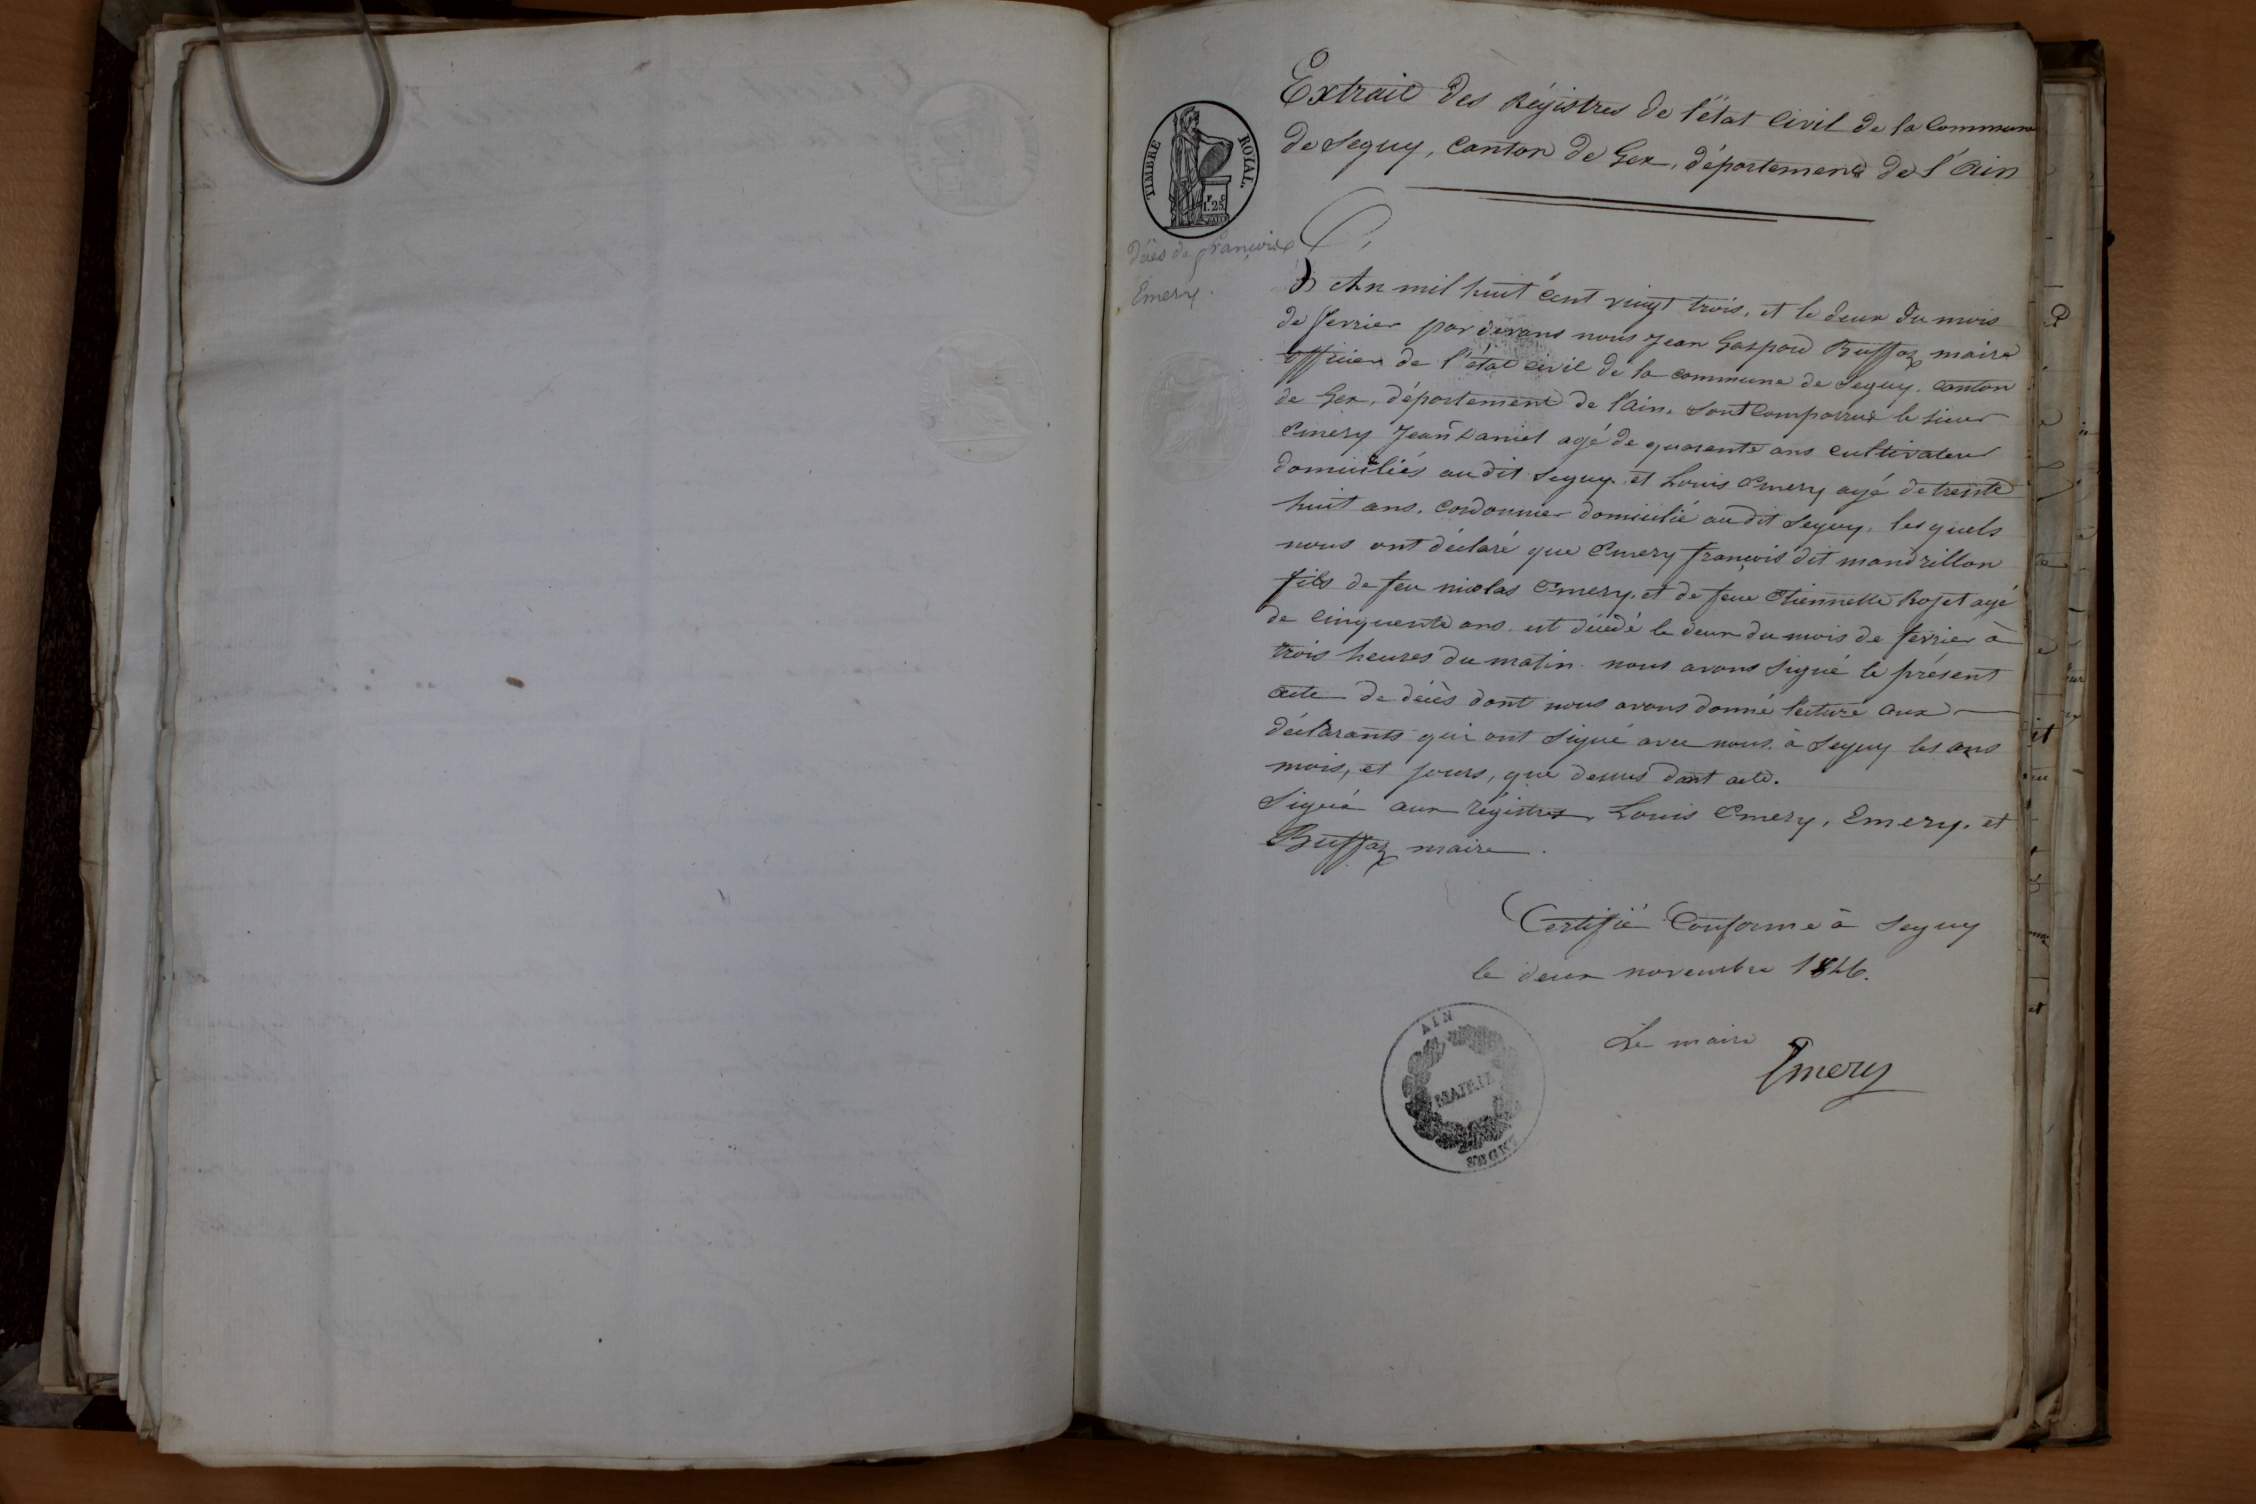 Extrait des Régistres de l'état Civil de la Commune
de Segny, Canton de Gex, département de l'Ain
TIMBRE ROYAL.
1.25
Décès de françois
Emery.
L'An mil huit cent vingt trois, et le deux du mois
de fevrier par devans nous Jean Gaspard Buffaz maire
officier de l'état civil de la commune de Segny, canton
de Gex, département de l'ain, sont comparrus le sieur
Emery Jean Daniel agé de quarente ans cultivateur
domiciliés audit Segny et Louis Emery agé de trente
huit ans, cordonnier domicilié audit Segny, lesquels
nous ont déclaré que Emery françois dit mandrillon
fils de feu nicolas Emery, et de feue Etiennette Rojet agé
de cinquente ans est décédé le deux du mois de fevrier à
trois heures du matin nous avons signé le présent
acte de décès dont nous avons donné lecture aux
déclarants qui ont signé avec nous à Segny les ans
mois, et jours, que dessus dont acte.
Signé aux régistres Louis Emery, Emery, et
Buffaz maire.
Certifié Conforme à Segny
le deux novembre 1846.
Le maire
Emery
AIN
MAIRIE
SEGNY